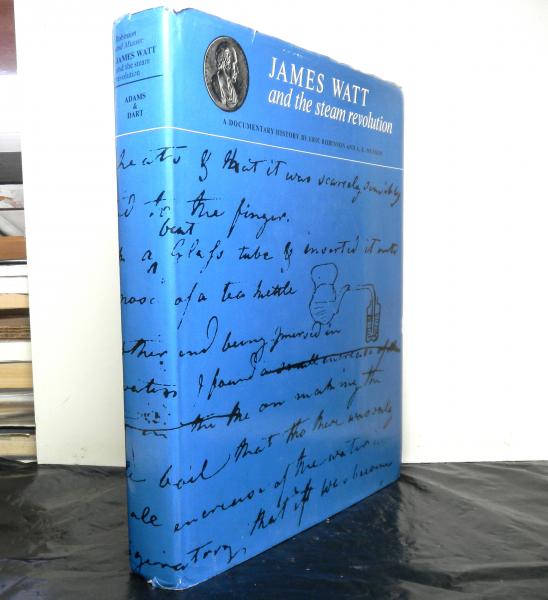 Robinson
and Musson
JAMES WATT
and the steam
revolution
ADAMS
&
DART
JAMES WATT
and the steam revolution
A DOCUMENTARY HISTORY BY ERIC ROBINSON AND A. E. MUSSON
heats & that it was scarcely sensibly
to the finger.
bent
a Glass tube & inserted it into
nose of a tea kettle
other end being immersed in
water I found a small increase of the
on making the
boil that tho there was only
increase of the water in
that it was become